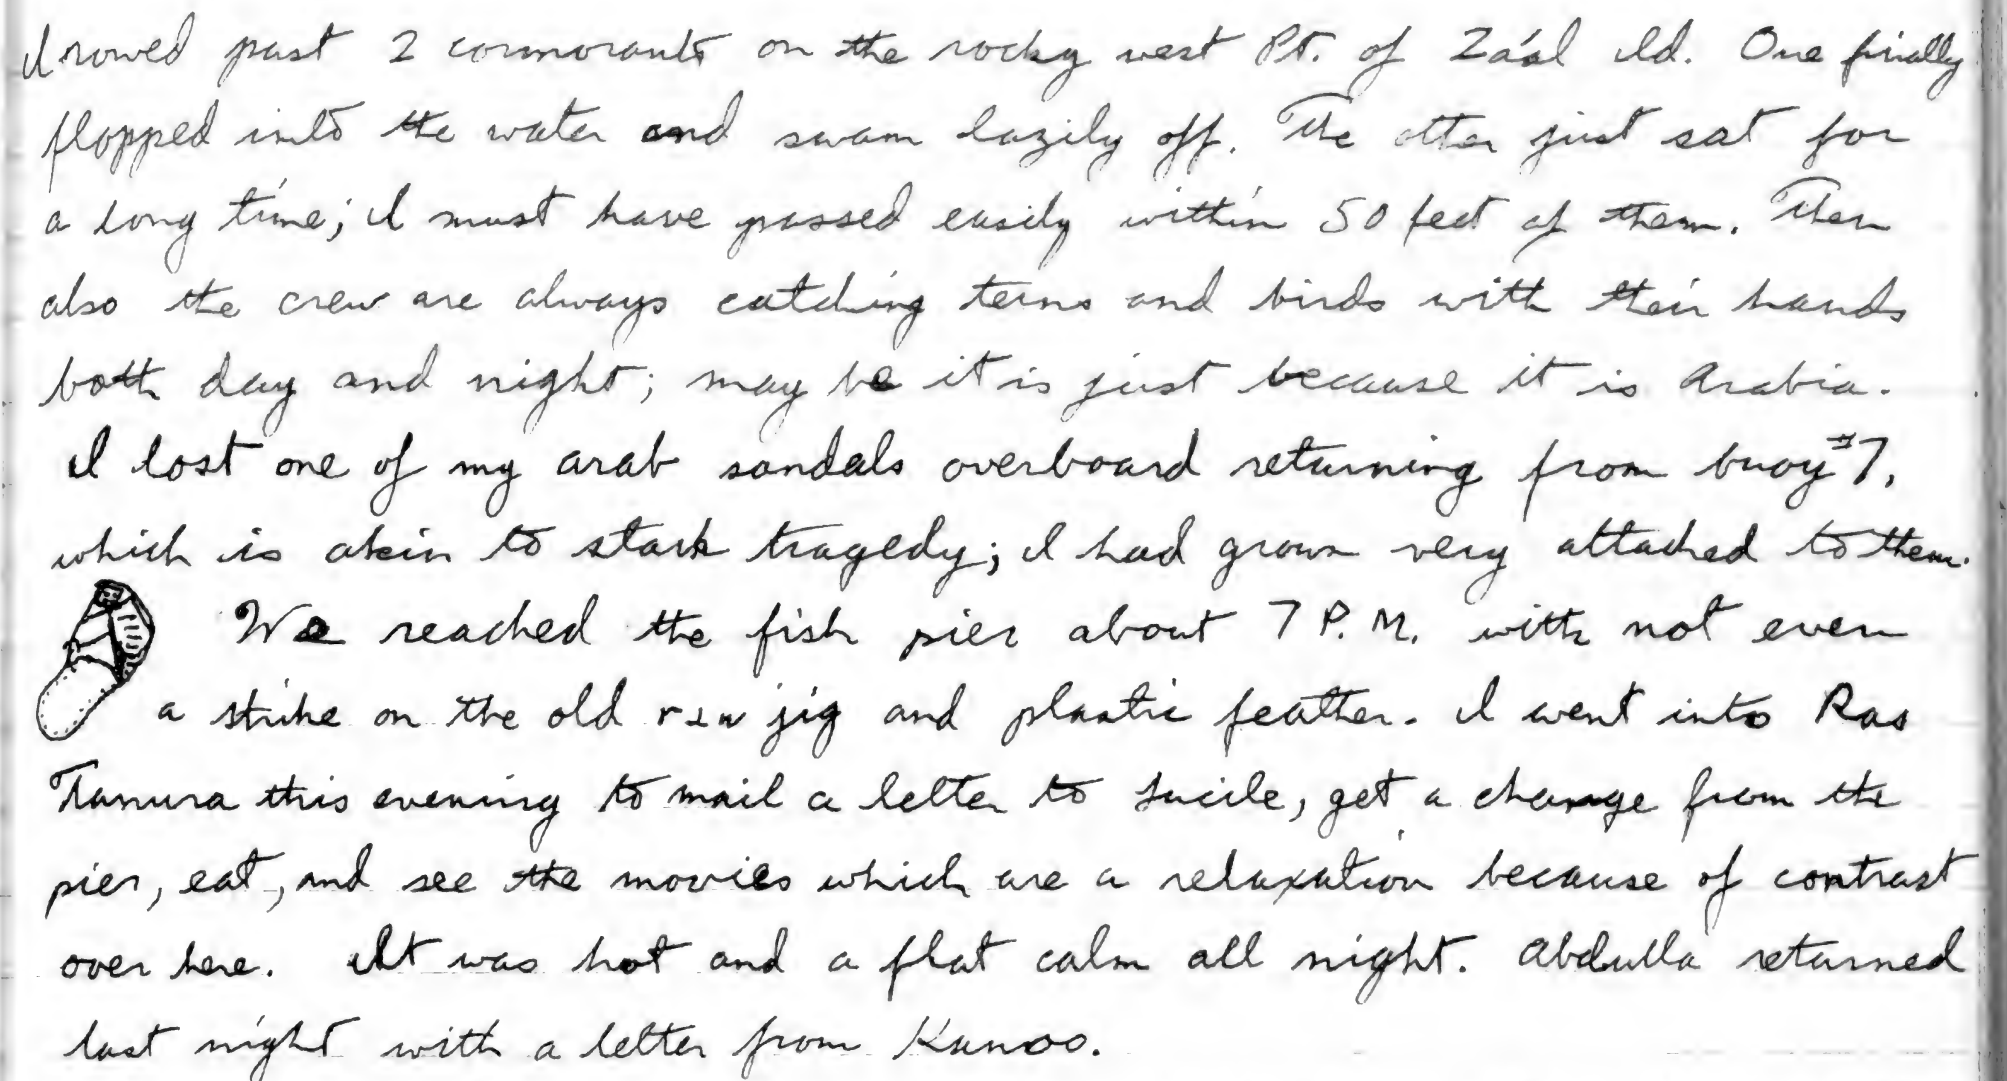 I rowed past 2 cormorants on the rocky west Pt. of Za'al Ild. One finally
flopped into the water and swam lazily off. The other just sat for
a long time; I must have passed easily within 50 feet of them. Then
also the crew are always catching terns and birds with their hands
both day and night; may be it is just because it is Arabia.
I lost one of my arab sandals overboard returning from buoy #7,
which is akin to stark tragedy; I had grown very attached to them.
We reached the fish pier about 7 P.M. with not even
a strike on the old jig and plastic feather. I went into Ras
Tanura this evening to mail a letter to Lucile, get a change from the
pier, eat, and see the movies which are a relaxation because of contrast
over here. It was hot and a flat calm all night. Abdulla returned
last night with a letter from Kanoo.